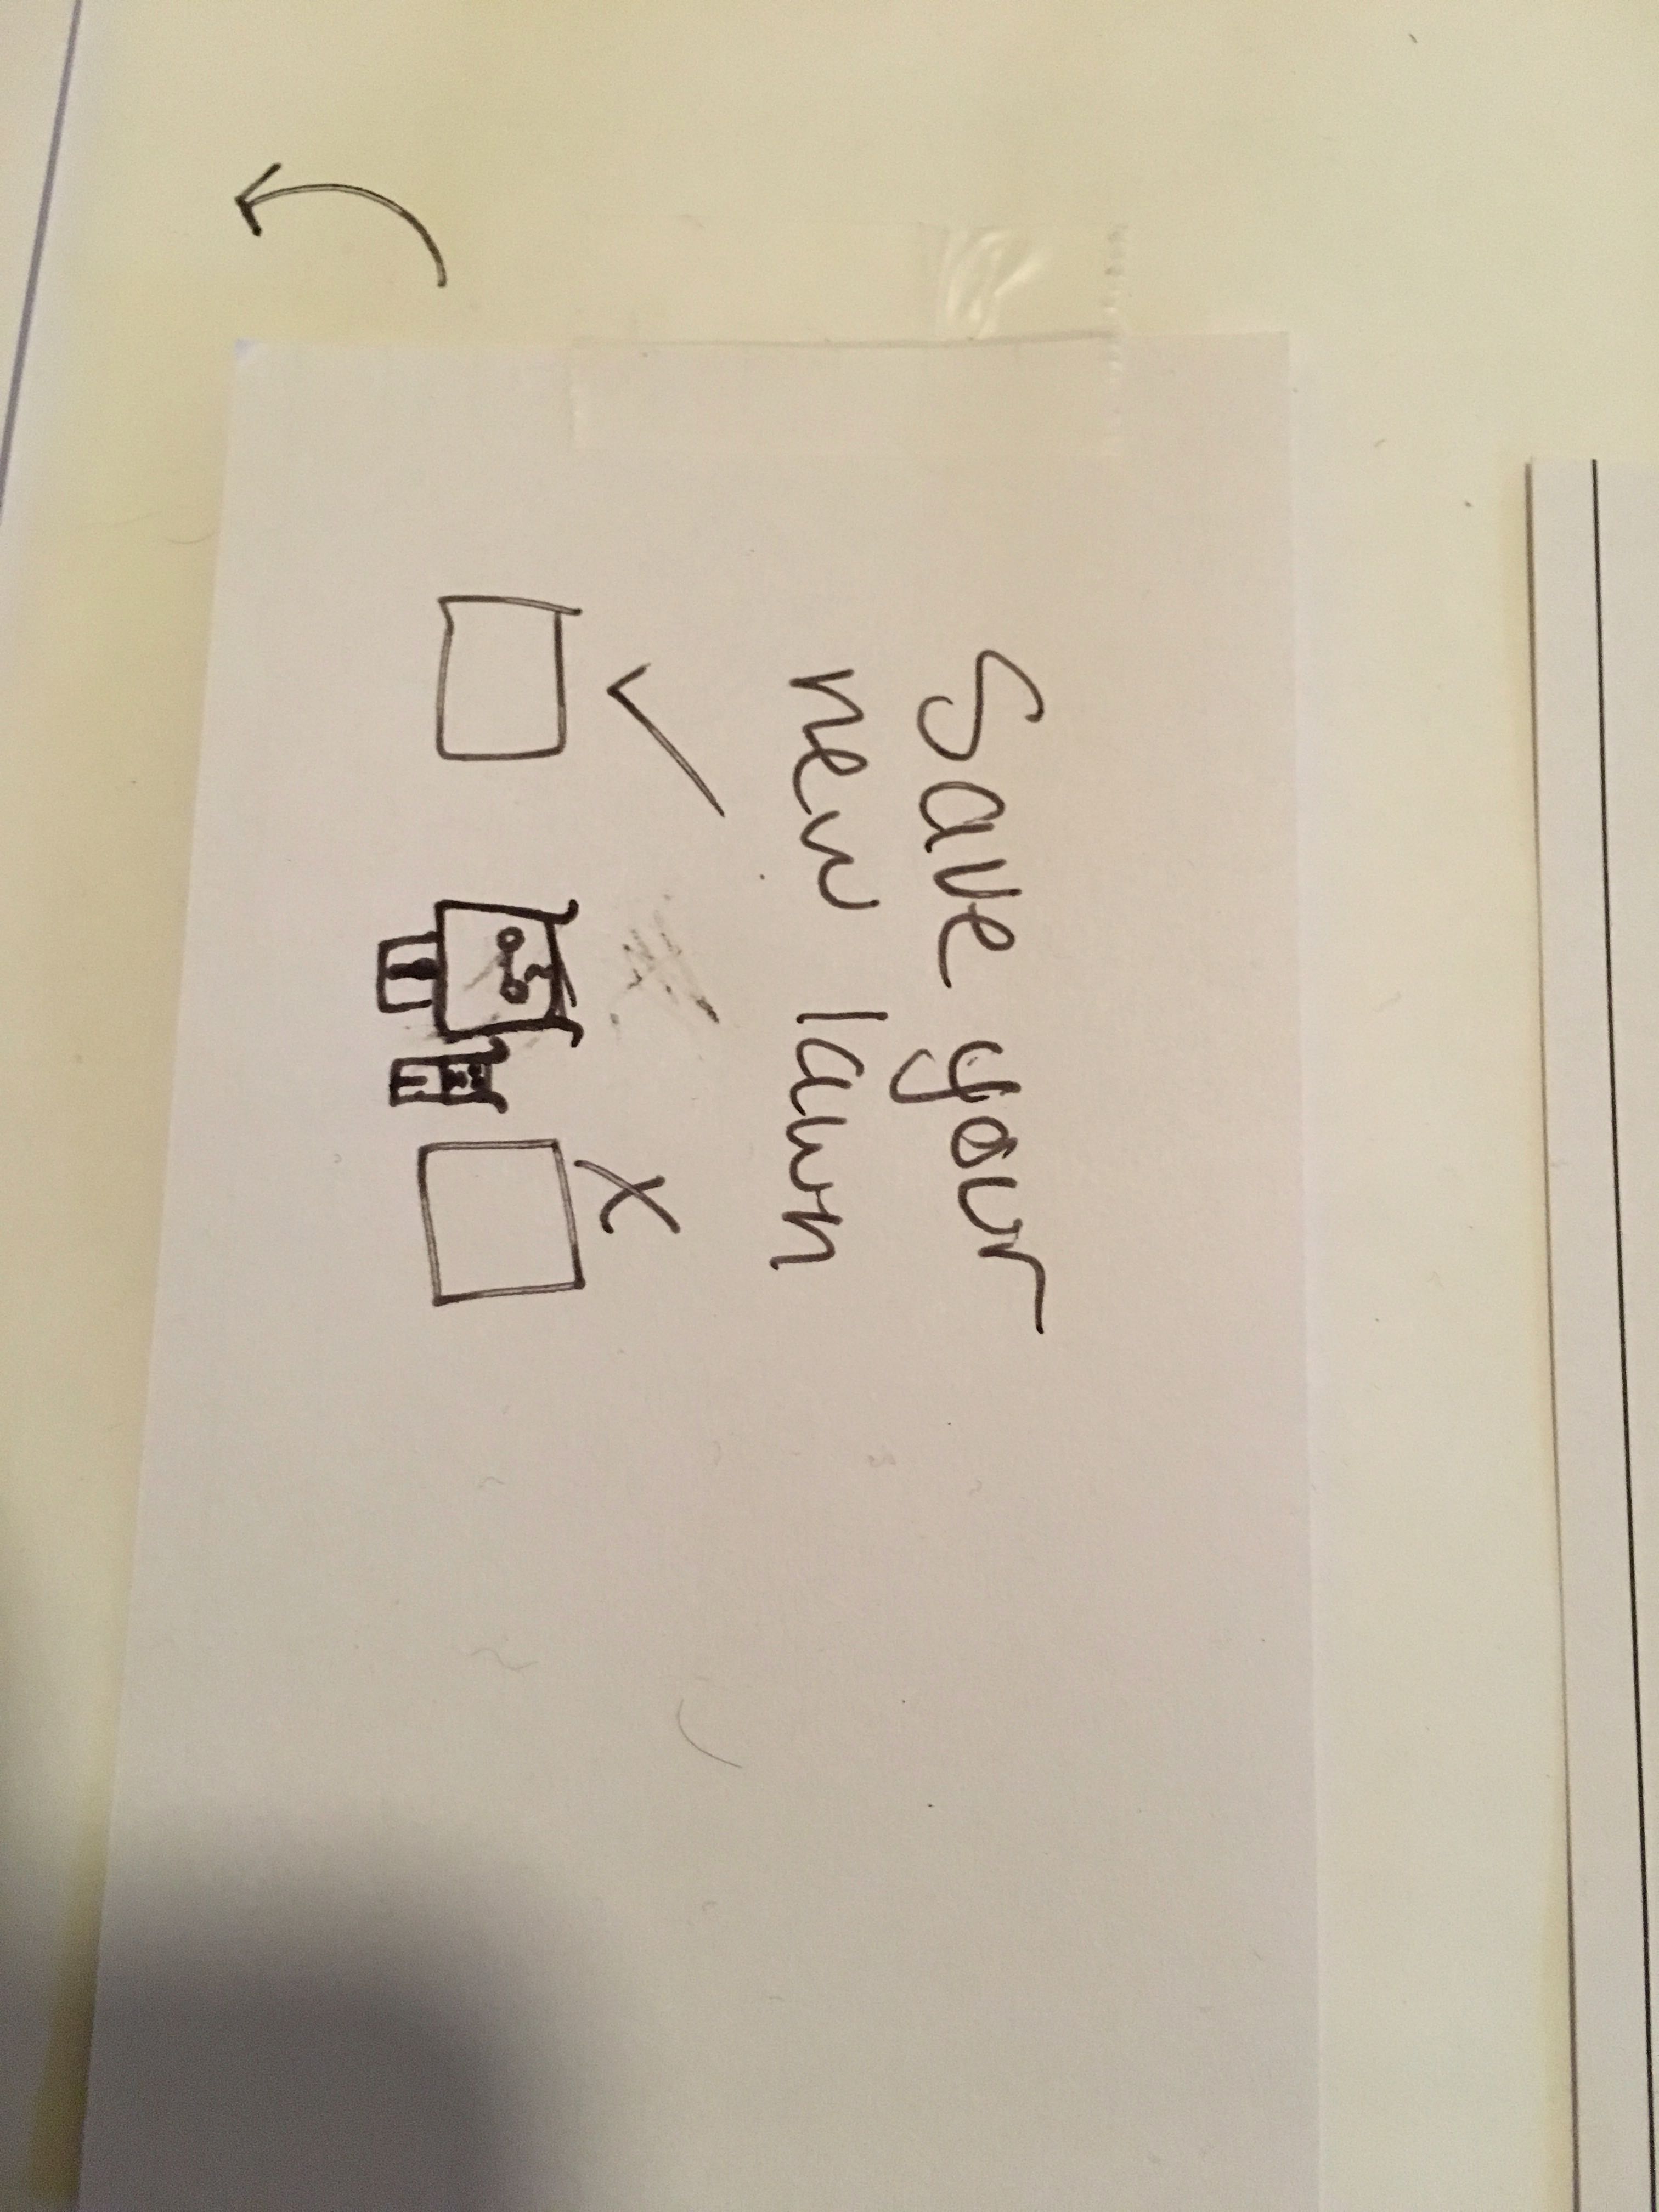 Save your
new lawn
X